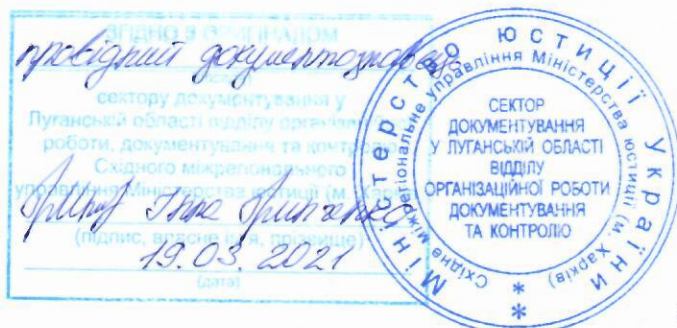 ЗГІДНО З ОРИГІНАЛОМ
провідний документознавець
сектору документування у
Луганській області відділу організаційної
роботи, документування та контролю
Східного міжрегіонального
управління Міністерства юстиції (м. Харків)
Інна
(підпис, власне ім'я, прізвище)
19.03.2021
(дата)
Міністерство юстиції України
Східне міжрегіональне управління Міністерства юстиції (м. Харків)
СЕКТОР
ДОКУМЕНТУВАННЯ
У ЛУГАНСЬКІЙ ОБЛАСТІ
ВІДДІЛУ
ОРГАНІЗАЦІЙНОЇ РОБОТИ
ДОКУМЕНТУВАННЯ
ТА КОНТРОЛЮ